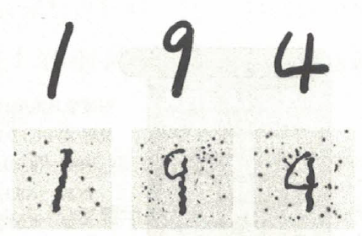 1 9 4
1 9 4